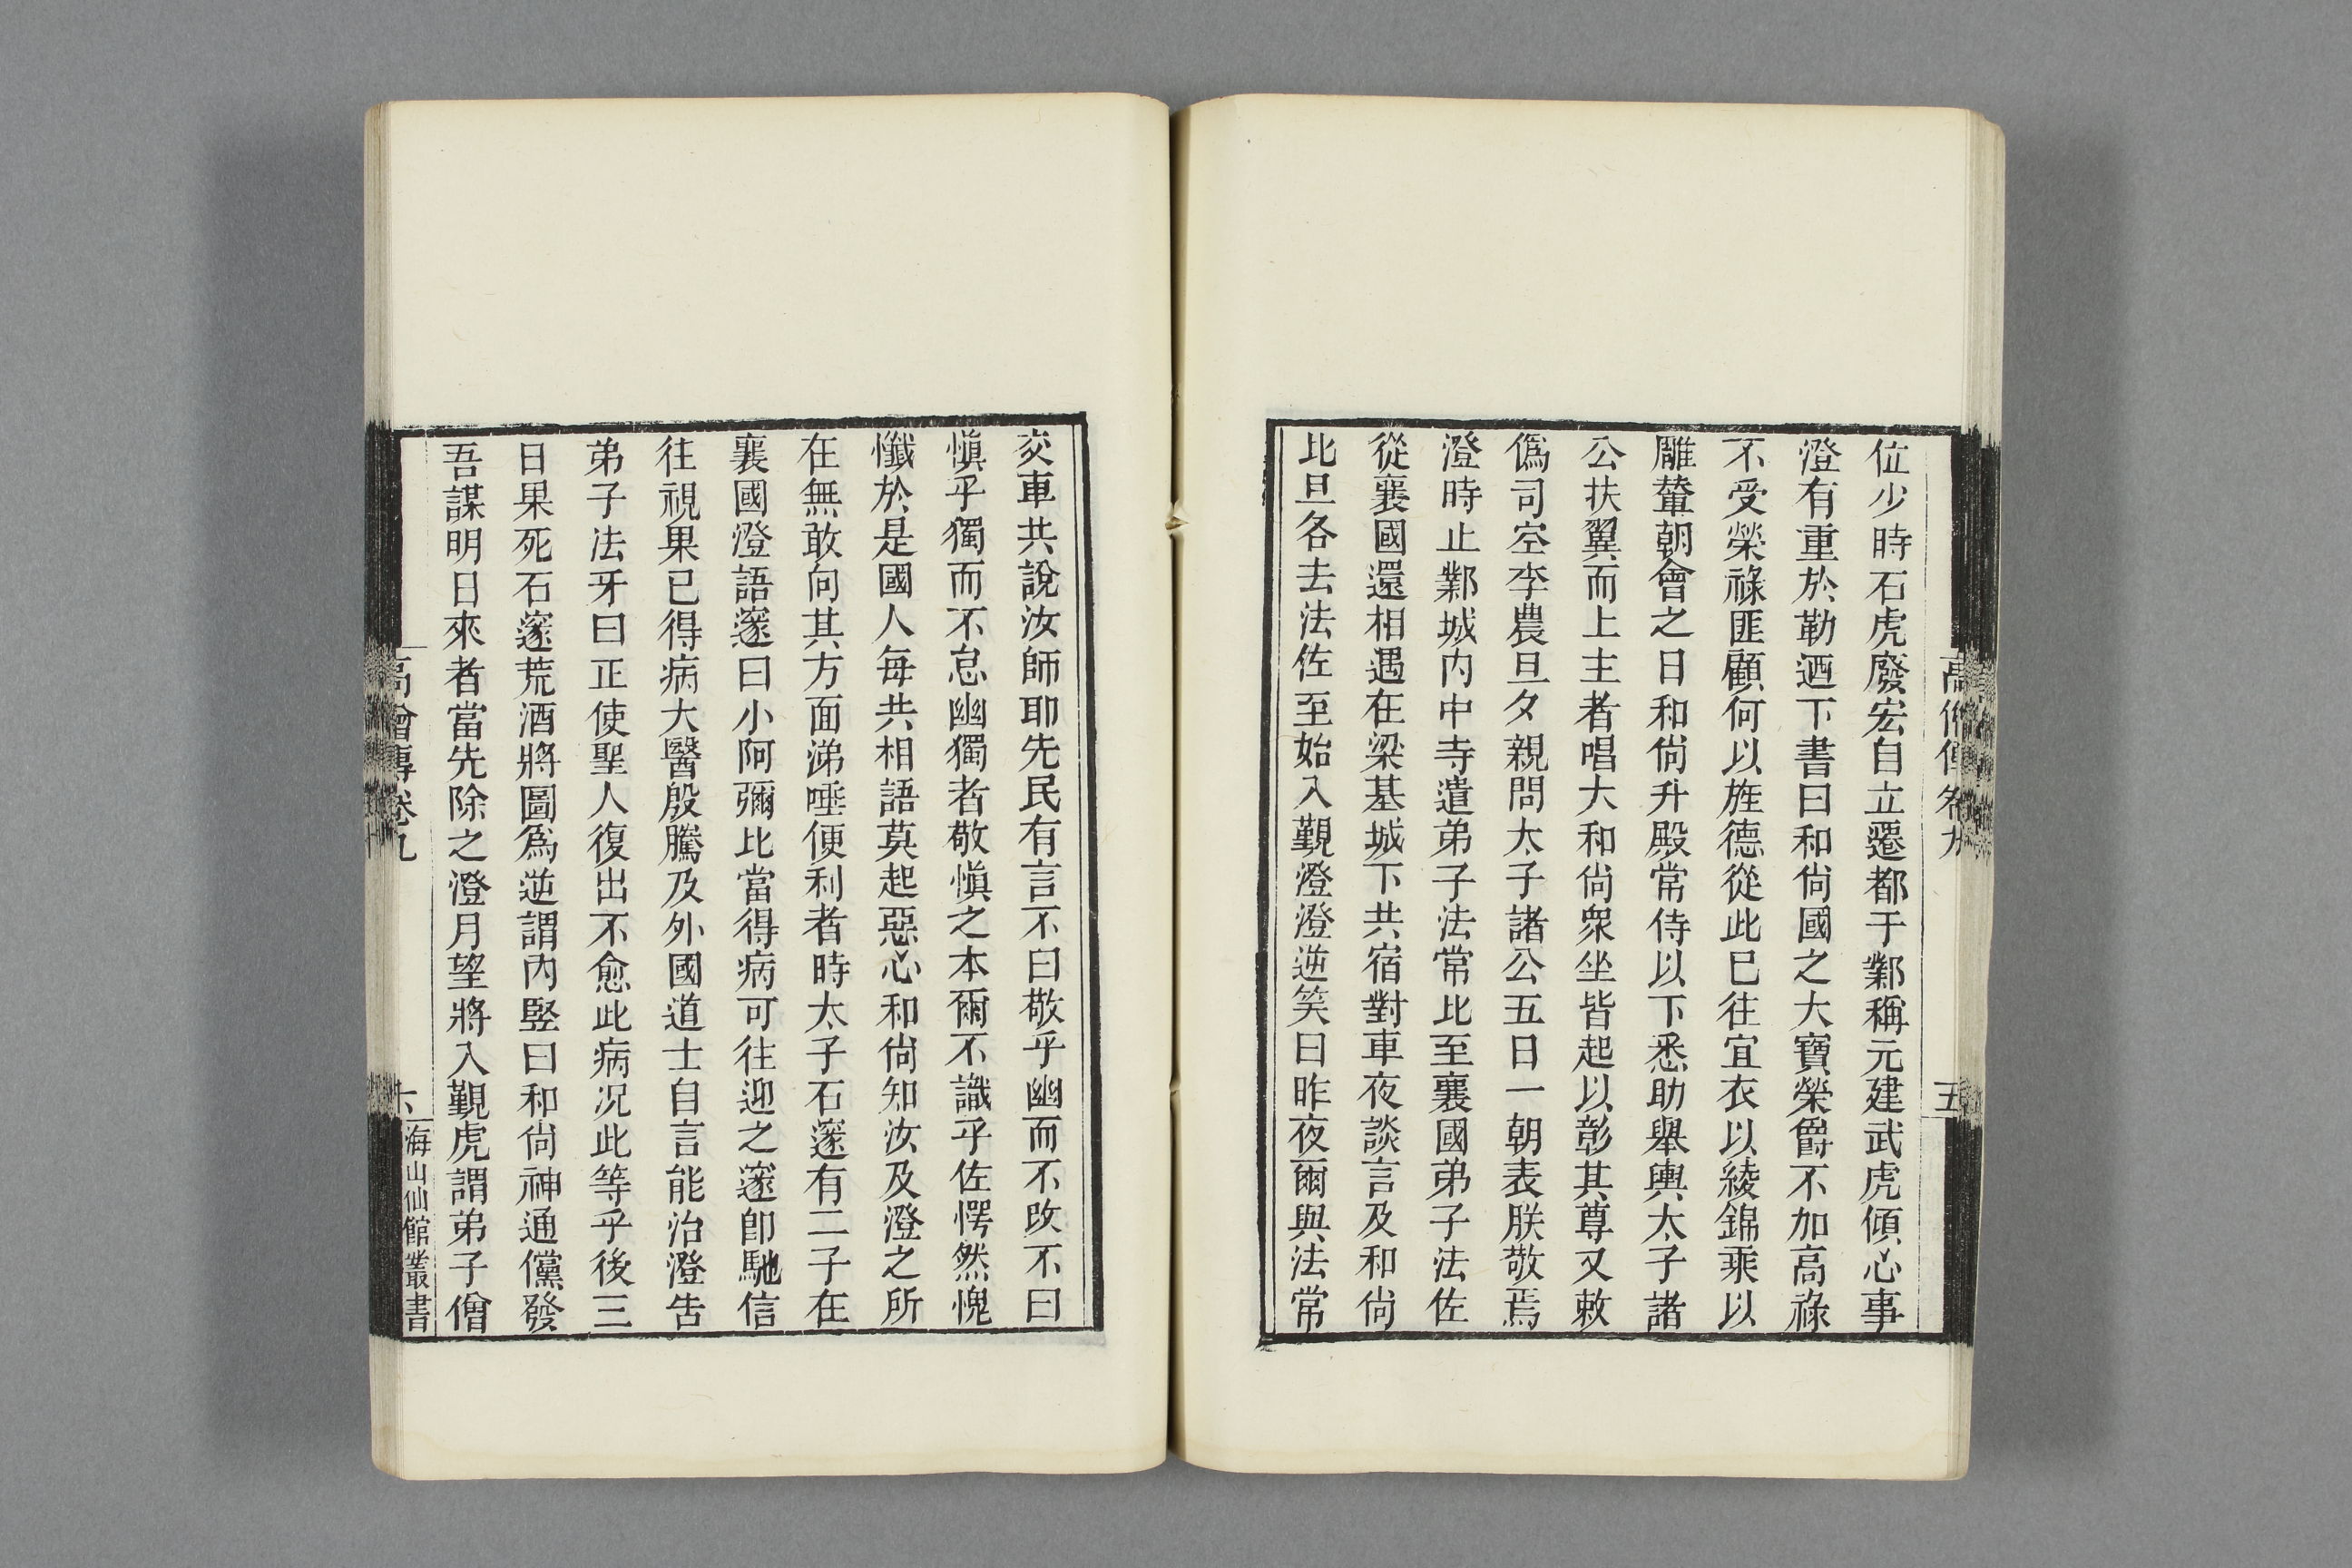 高僧傳卷九
五
位少時石虎廢宏自立遷都于鄴稱元建武虎傾心事
澄有重於勒迺下書曰和尙國之大寶榮爵不加高祿
不受榮祿匪顧何以旌德從此已往宜衣以綾錦乘以
雕輦朝會之日和尙升殿常侍以下悉助舉輿太子諸
公扶翼而上主者唱大和尙衆坐皆起以彰其尊又敕
僞司空李農旦夕親問太子諸公五日一朝表朕敬焉
澄時止鄴城內中寺遣弟子法常北至襄國弟子法佐
從襄國還相遇在梁基城下共宿對車夜談言及和尙
比旦各去法佐至始入覲澄澄逆笑曰昨夜爾與法常
交車共說汝師耶先民有言不曰敬乎幽而不改不曰
愼乎獨而不怠幽獨者敬愼之本爾不識乎佐愕然愧
懺於是國人每共相語莫起惡心和尙知汝及澄之所
在無敢向其方面涕唾便利者時太子石邃有二子在
襄國澄語邃曰小阿彌比當得病可往迎之邃卽馳信
往視果已得病大醫殷騰及外國道士自言能治澄吿
弟子法牙曰正使聖人復出不愈此病况此等乎後三
日果死石邃荒酒將圖爲逆謂內豎曰和尙神通儻發
吾謀明日來者當先除之澄月望將入覲虎謂弟子僧
高僧傳卷九
六
海山仙館叢書